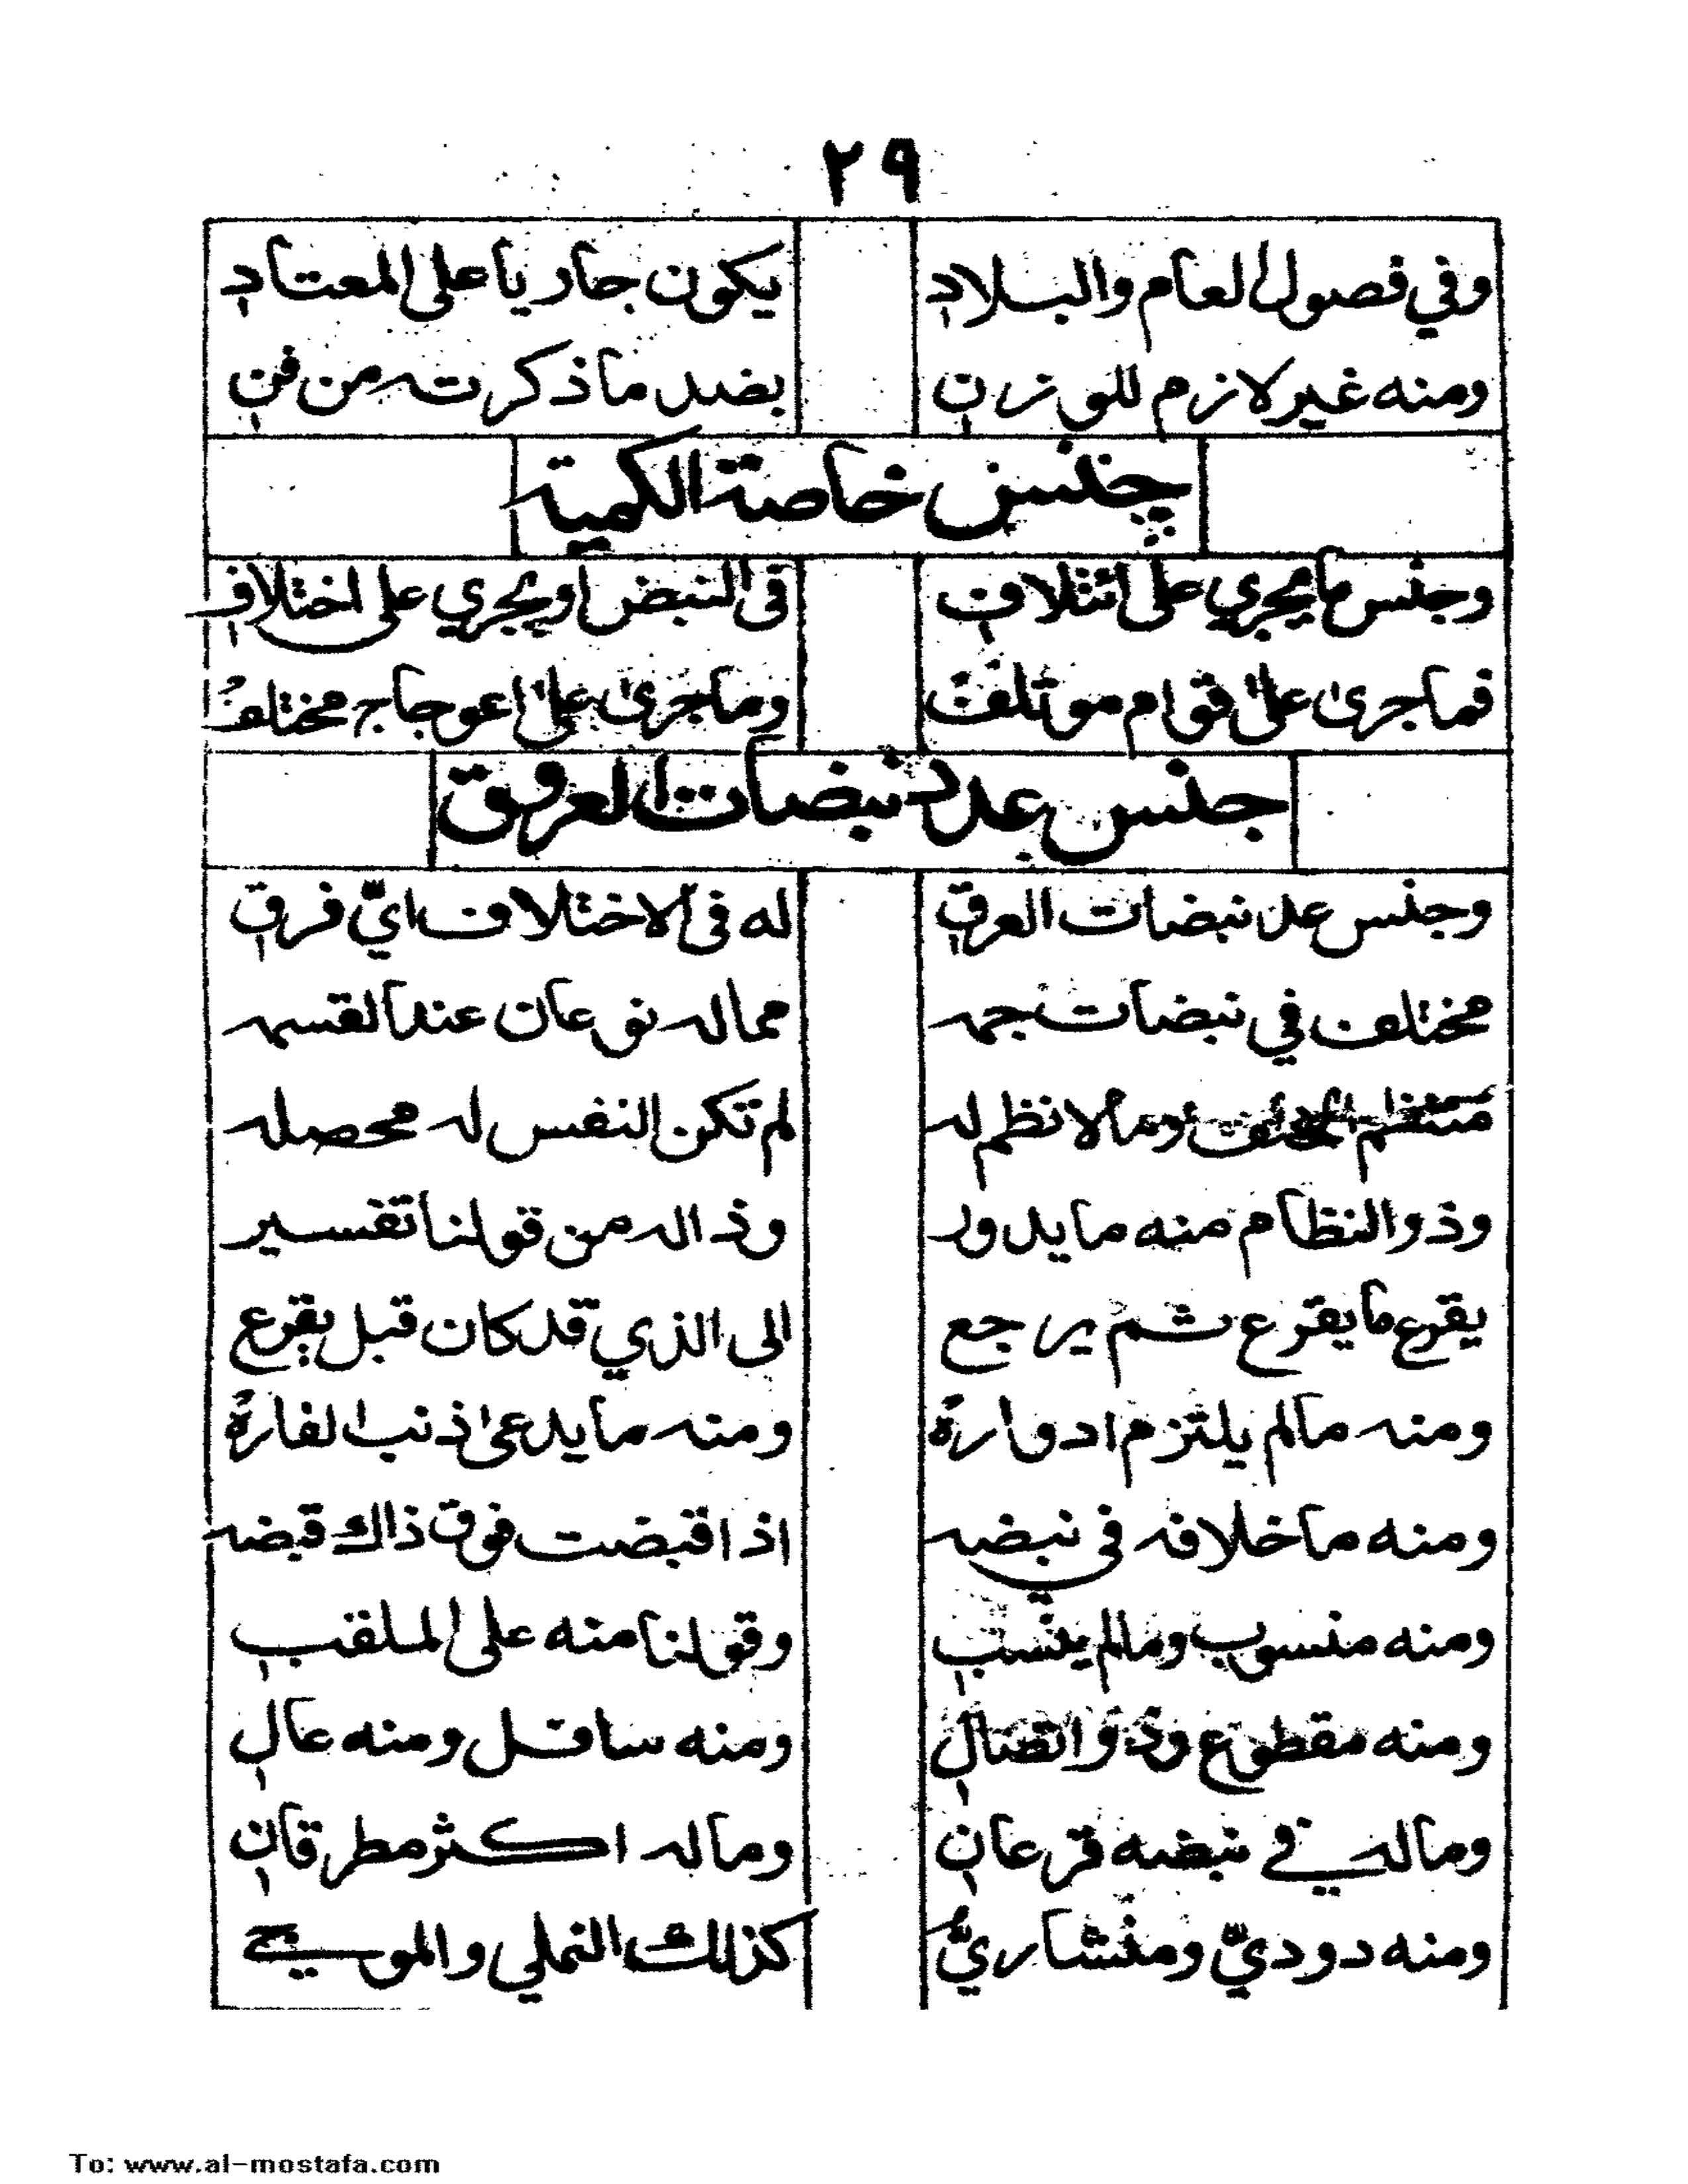 ٢٩
وفي فصول العام والبلاد يكون جاريا على المعتاد
ومنه غير لازم للوزن بضد ما ذكرته من فن
جنس خاصة الكمية
وجنس ما يجري على ائتلاف فى النبض او يجري على اختلاف
فما جرى على قوام موتلف وما جرى على اعوجاج مختلف
جنس عدد نبضات العروق
وجنس عد نبضات العرق له فى الاختلاف ايّ فرق
مختلف في نبضات جمه مماله نوعان عند القسمه
منتظم وما لا نظم له لم تكن النفس له محصله
وذو النظام منه ما يدور وذا له من قولنا تفسير
يقرع ما يقرع ثم يرجع الى الذي قد كان قبل يقرع
ومنه مالم يلتزم ادواره ومنه ما يدعى ذنب الفاره
ومنه ما خلافه فى نبضه اذا قبضت فوق ذاك قبضه
ومنه منسوب ومالم ينسب وقولنا منه على الملقب
ومنه مقطوع وذو اتصال ومنه سافل ومنه عال
وماله في نبضه قرعان وماله اكثر مطرقان
ومنه دوديّ ومنشاريّ كذلك النملي والموجي
To: www.al-mostafa.com